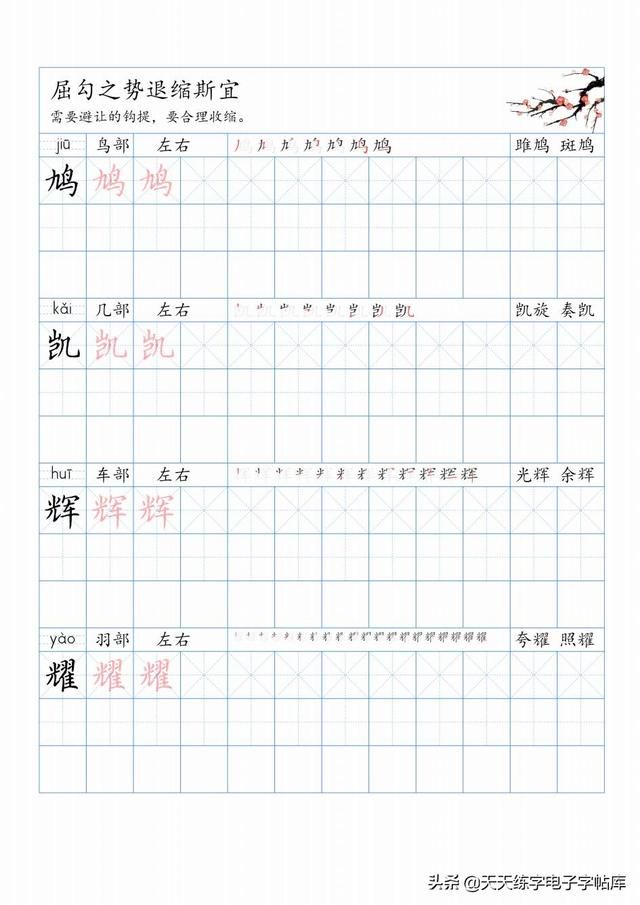 屈勾之势退缩斯宜
需要避让的钩提，要合理收缩。
jiū 鸟部 左右 雎鸠 斑鸠
鸠 鸠 鸠
kǎi 几部 左右 凯旋 奏凯
凯 凯 凯
huī 车部 左右 光辉 余辉
辉 辉 辉
yào 羽部 左右 夸耀 照耀
耀 耀 耀
头条 @天天练字电子字帖库